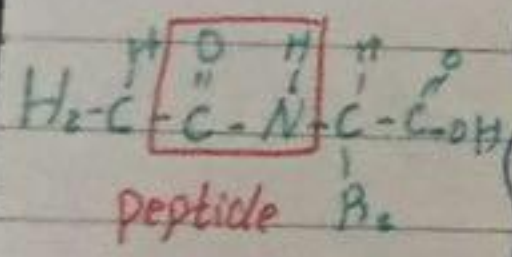 H O H H O
H₂-C-C-N-C-C-OH
peptide R₂